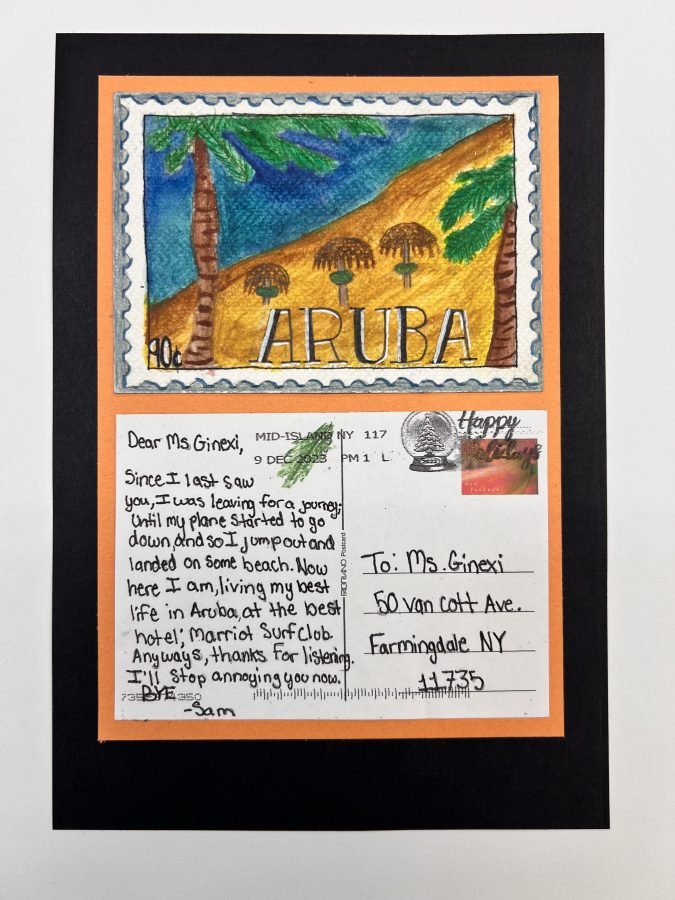 90¢
ARUBA
Dear Ms. Ginexi,
Since I last saw
you, I was leaving for a journey;
Until my plane started to go
down, and so I jump out and
landed on some beach. Now
here I am, living my best
life in Aruba, at the best
hotel; Marriot Surf Club.
Anyways, thanks for listening.
I'll stop annoying you now.
BYE
-Sam
MID-ISLAND NY 117
9 DEC 2023 PM 1 L
2023
Happy
Holidays
FABRIANO Postcard
To: Ms. Ginexi
50 Van Cott Ave.
Farmingdale NY
11735